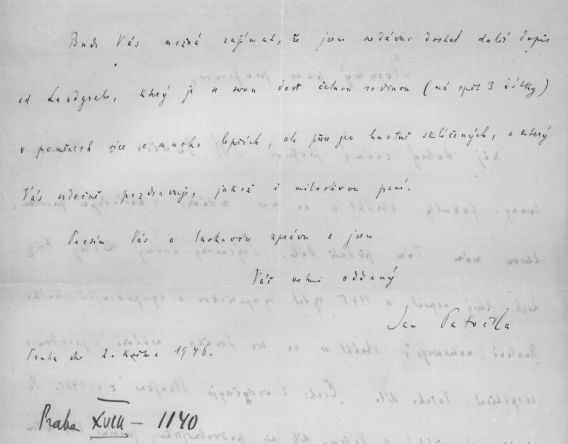 Bude Vás možná zajímat, že jsem nedávno dostal další dopis
od Landgrebe, který je se svou dosti četnou rodinou (má opět 3 dítky)
v poměrech sice o mnoho lepších, ale přece jen hmotně sklíčených, a který
Vás srdečně pozdravuje, jakož i milostivou paní.
Prosím Vás o laskavou zprávu a jsem
Váš velmi oddaný
Jan Patočka
Praha dne 2. 1946.
Praha XVIII – 1140